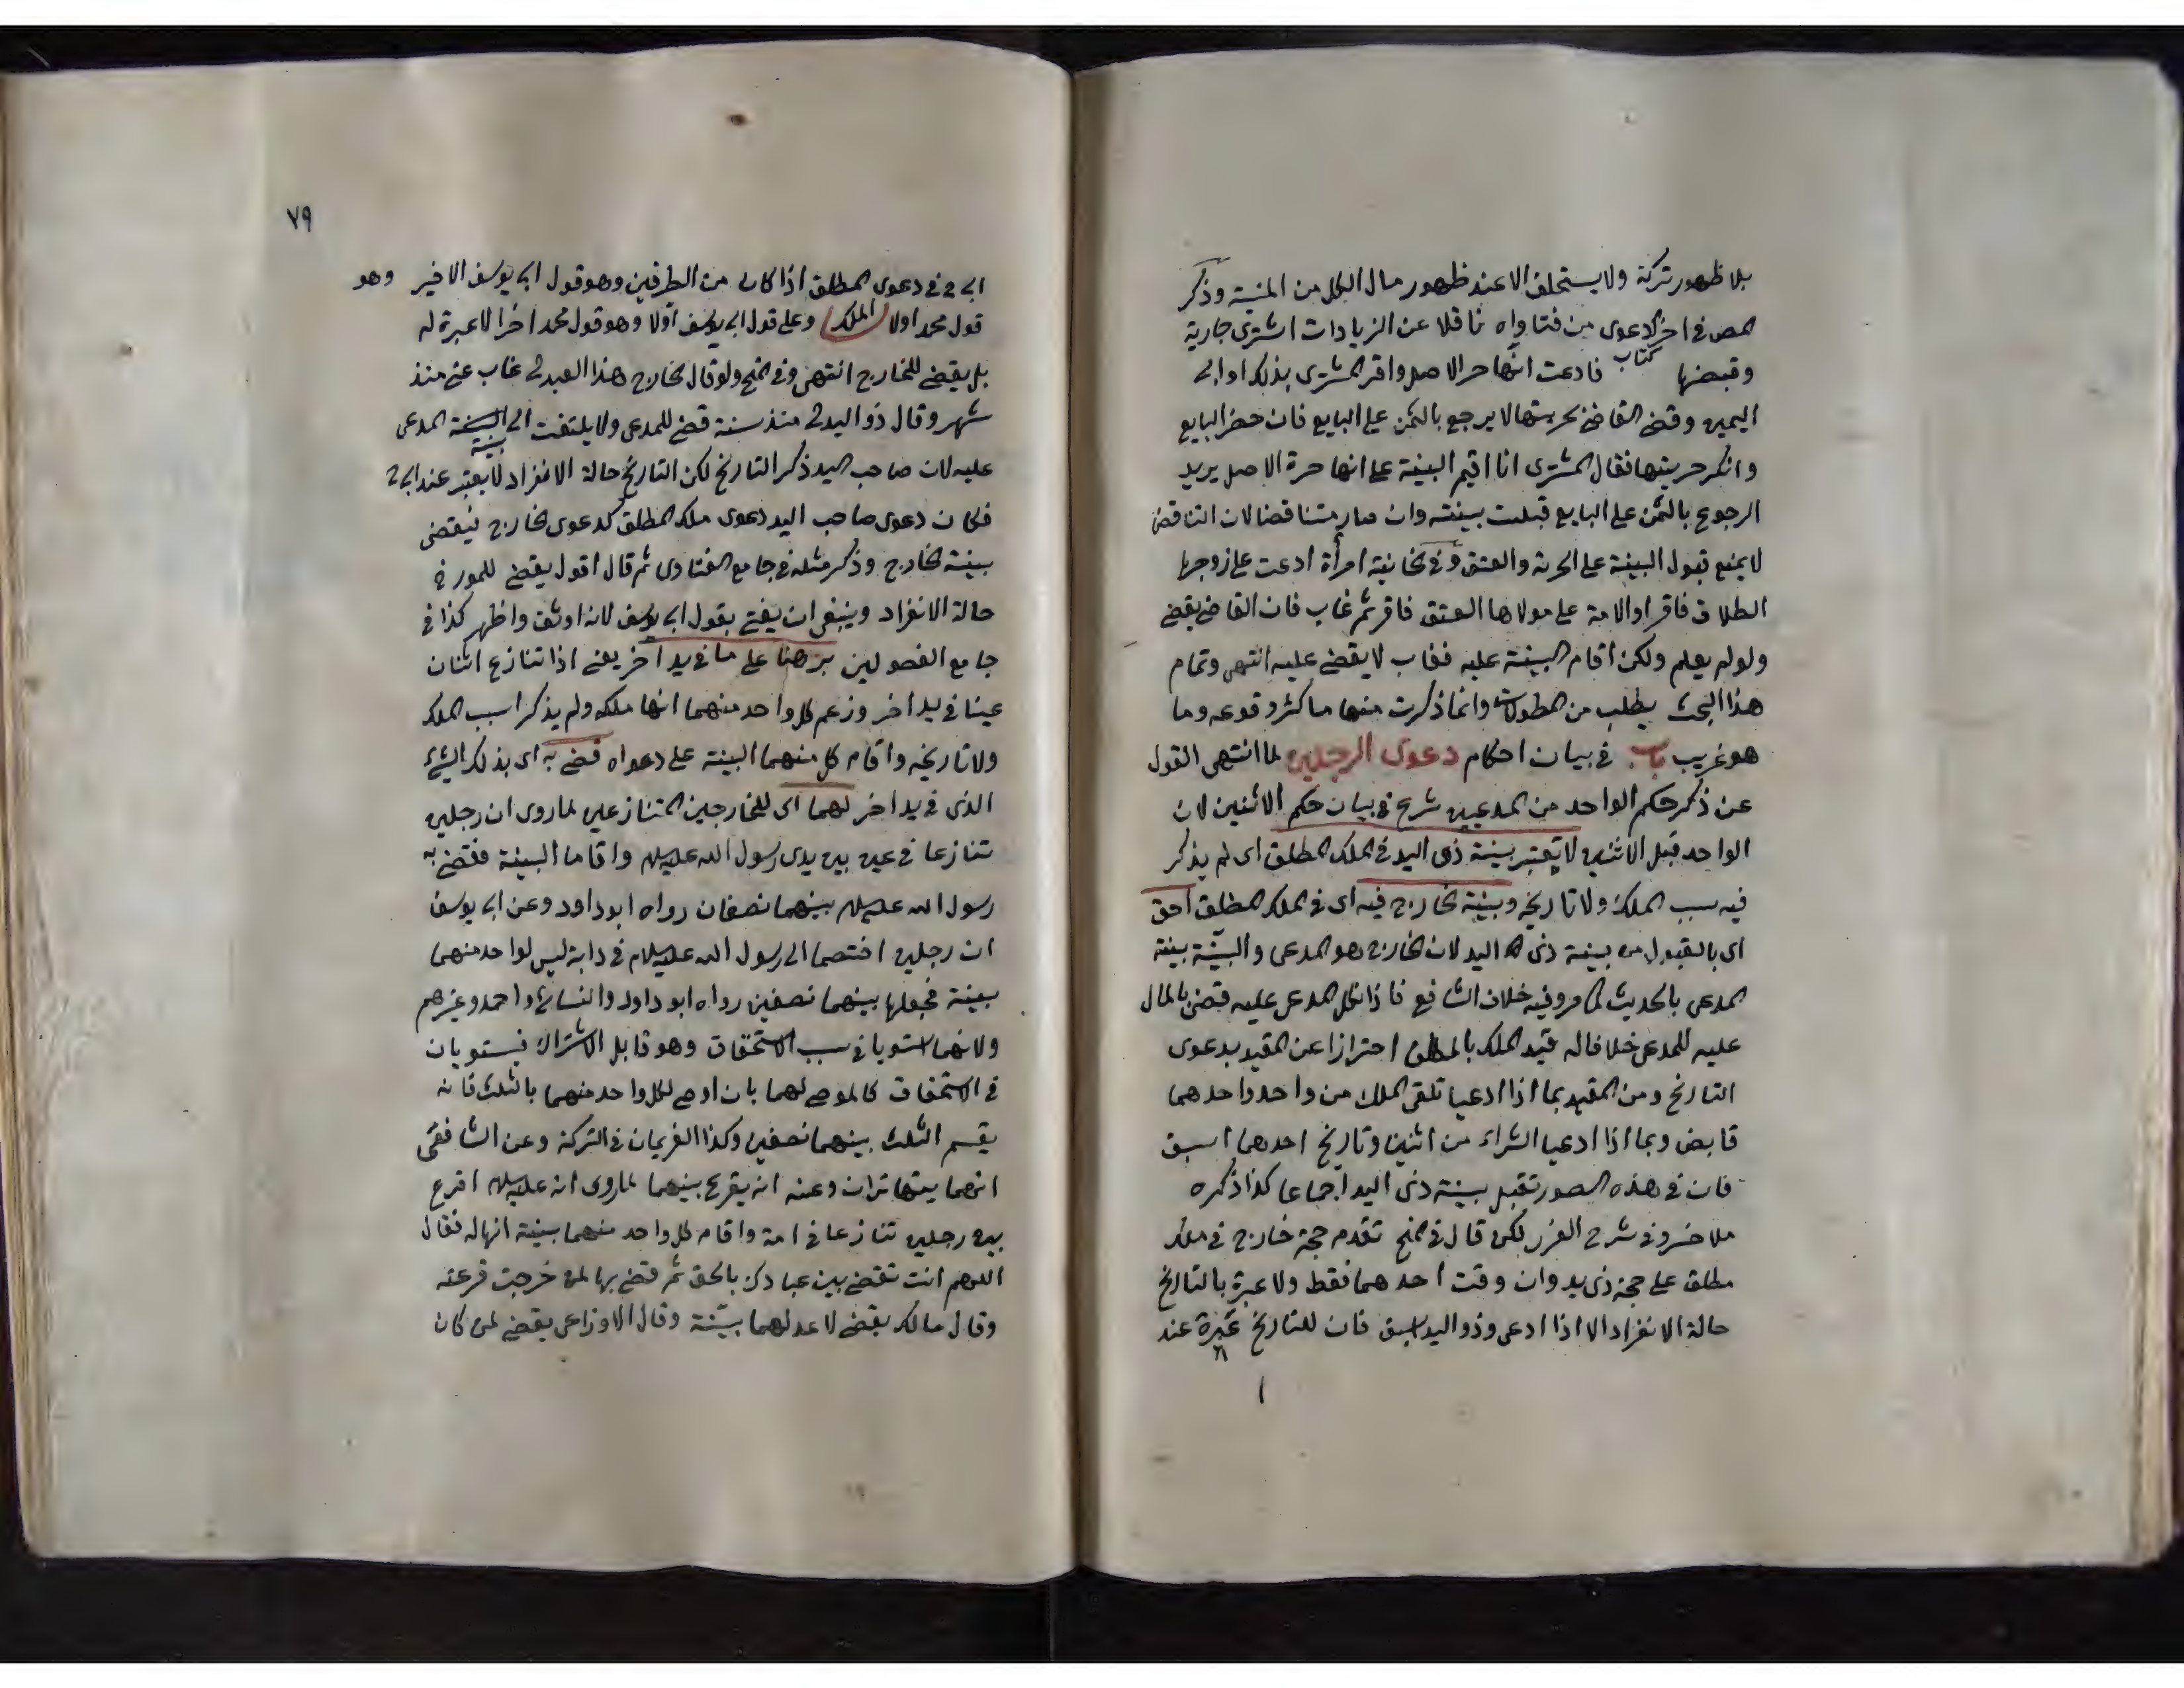 بلا ظهور تركة ولا يستحلف الا عند ظهور مال الكل من المنية وذكر
المص في اخر الدعوى من فتاواه ناقلا عن الزيادات اشترى جارية
وقبضها فادعت انها حر الاصل واقر المشترى بذلك او ابى
كتاب
اليمين وقضى القاضي بحريتها لا يرجع بالثمن على البايع فان حضر البايع
وانكر حريتها فقال المشترى انا اقيم البينة على انها حرة الاصل يريد
الرجوع بالثمن على البايع قبلت بينته وان صار متناقضا لان التناقض
لا يمنع قبول البينة على الحرية والعتق وفي الخانية امرأة ادعت على زوجها
الطلاق فاقر او الامة على مولاها العتق فاقر ثم غاب فان القاضي يقضي
ولو لم يعلم ولكن اقام البينة عليه فغاب لا يقضي عليه انتهى وتمام
هذا البحث يطلب من المطولات وانما ذكرت منها ما كثر وقوعه وما
هو غريب باب في بيان احكام دعوى الرجلين لما انتهى القول
عن ذكر حكم الواحد من المدعيين شرع في بيان حكم الاثنين لان
الواحد قبل الاثنين لا تعتبر بينة ذي اليد في الملك المطلق اى لم يذكر
فيه سبب الملك ولا تاريخه وبينة الخارج فيه اى في الملك المطلق احق
اى بالقبول من بينة ذى اليد لان الخارج هو المدعى والبينة بينة
المدعى بالحديث كما مر وفيه خلاف الشافع فاذا نكل المدعى عليه قضى بالمال
عليه للمدعى خلافا له قيد الملك بالمطلق احترازا عن المقيد بدعوى
التاريخ ومن المقيد بما اذا ادعيا تلقى الملك من واحد واحدهما
قابض وبما اذا ادعيا الشراء من اثنين وتاريخ احدهما اسبق
فان في هذه الصور تقبل بينة ذى اليد اجماعا كذا ذكره
ملا خسرو في شرح الغرر لكن قال في المنح تقدم حجة خارج في ملك
مطلق على حجة ذى يد وان وقت احدهما فقط ولا عبرة بالتاريخ
حالة الانفراد الا اذا ادعى وذو اليد اسبق فان للتاريخ عبرة عند
٧٩
ابى ح في دعوى المطلق اذا كان من الطرفين وهو قول ابى يوسف الاخير وهو
قول محمد اولا الملك وعلى قول ابى يوسف اولا وهو قول محمد اخرا لا عبرة له
بل يقضى للخارج انتهى وفي المنح ولو قال الخارج هذا العبد لى غاب عنى منذ
شهر وقال ذو اليد لى منذ سنة قضى للمدعى ولا يلتفت الى بينة المدعى
عليه لان صاحب اليد ذكر التاريخ لكن التاريخ حالة الانفراد لا يعتبر عند ابى ح
فكان دعوى صاحب اليد دعوى ملك المطلق كدعوى الخارج فيقضى
ببينة الخارج وذكر مثله في جامع الفتاوى ثم قال اقول يقضى للمورخ
حالة الانفراد وينبغى ان يفتى بقول ابى يوسف لانه اوثق واظهر كذا في
جامع الفصولين برهنا على ما في يد اخر يعنى اذا تنازع اثنان
عينا في يد اخر وزعم كل واحد منهما انها ملكه ولم يذكرا سبب الملك
ولا تاريخه واقام كل منهما البينة على دعواه قضى به اى بذلك الشئ
الذى في يد اخر لهما اى للخارجين المتنازعين لما روى ان رجلين
تنازعا في عين بين يدى رسول الله عليه السلام واقاما البينة فقضى به
رسول الله عليه السلام بينهما نصفان رواه ابو داود وعن ابى يوسف
ان رجلين اختصما الى رسول الله عليه السلام في دابة ليس لواحد منهما
بينة فجعلها بينهما نصفين رواه ابو داود والنسائ واحمد وغيرهم
ولانهما استويا في سبب الاستحقاق وهو قابل الاشتراك فيستويان
في الاستحقاق كالموصى لهما بان اوصى لكل واحد منهما بالثلث فانه
يقسم الثلث بينهما نصفين وكذا الغريمان في التركة وعن الشافعى
انهما يتهاتران وعنه انه يقرع بينهما لما روى انه عليه السلام اقرع
بين رجلين تنازعا في امة واقام كل واحد منهما بينة انها له فقال
اللهم انت تقضى بين عبادك بالحق ثم قضى بها لمن خرجت قرعته
وقال مالك يقضى لاعدلهما بينة وقال الاوزاعى يقضى لمن كان